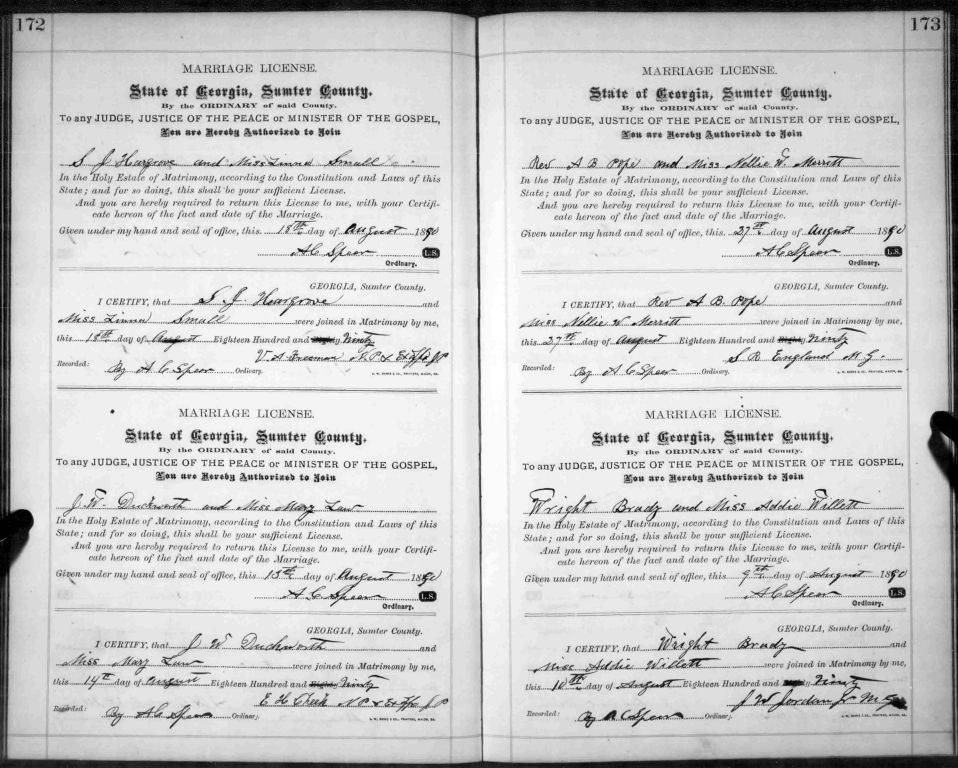 172
MARRIAGE LICENSE.
State of Georgia, Sumter County.
By the ORDINARY of said County.
To any JUDGE, JUSTICE OF THE PEACE or MINISTER OF THE GOSPEL,
You are Hereby Authorized to Join
S J Hargrove and Miss Linna Small
In the Holy Estate of Matrimony, according to the Constitution and Laws of this
State; and for so doing, this shall be your sufficient License.
And you are hereby required to return this License to me, with your Certifi-
cate hereon of the fact and date of the Marriage.
Given under my hand and seal of office, this 18th day of August 1890
A C Speer L.S.
Ordinary.
GEORGIA, Sumter County.
I CERTIFY, that S. J Hargrove and
Miss Linna Small were joined in Matrimony by me,
this 18th day of August Eighteen Hundred and Eighty Ninety
A Freeman N. P. & Ex offo J P
Recorded: By A C Speer Ordinary.
MARRIAGE LICENSE.
State of Georgia, Sumter County.
By the ORDINARY of said County.
To any JUDGE, JUSTICE OF THE PEACE or MINISTER OF THE GOSPEL,
You are Hereby Authorized to Join
J. W. Duckworth and Miss Mary Law
In the Holy Estate of Matrimony, according to the Constitution and Laws of this
State; and for so doing, this shall be your sufficient License.
And you are hereby required to return this License to me, with your Certifi-
cate hereon of the fact and date of the Marriage.
Given under my hand and seal of office, this 13th day of August 1890
A C Speer L.S.
Ordinary.
GEORGIA, Sumter County.
I CERTIFY, that J W Duckworth and
Miss Mary Law were joined in Matrimony by me,
this 14th day of August Eighteen Hundred and Eighty Ninety
E H Cheek N P & Ex offo J P
Recorded: By A C Speer Ordinary.
173
MARRIAGE LICENSE.
State of Georgia, Sumter County.
By the ORDINARY of said County.
To any JUDGE, JUSTICE OF THE PEACE or MINISTER OF THE GOSPEL,
You are Hereby Authorized to Join
Rev A B Pope and Miss Nellie W. Merritt
In the Holy Estate of Matrimony, according to the Constitution and Laws of this
State; and for so doing, this shall be your sufficient License.
And you are hereby required to return this License to me, with your Certifi-
cate hereon of the fact and date of the Marriage.
Given under my hand and seal of office, this 27th day of August 1890
A C Speer L.S.
Ordinary.
GEORGIA, Sumter County.
I CERTIFY, that Rev A B. Pope and
Miss Nellie W Merritt were joined in Matrimony by me,
this 27th day of August Eighteen Hundred and Eighty Ninety
S R England M. G.
Recorded: By A C Speer Ordinary.
MARRIAGE LICENSE.
State of Georgia, Sumter County.
By the ORDINARY of said County.
To any JUDGE, JUSTICE OF THE PEACE or MINISTER OF THE GOSPEL,
You are Hereby Authorized to Join
Wright Brady and Miss Addie Willett
In the Holy Estate of Matrimony, according to the Constitution and Laws of this
State; and for so doing, this shall be your sufficient License.
And you are hereby required to return this License to me, with your Certifi-
cate hereon of the fact and date of the Marriage.
Given under my hand and seal of office, this 9th day of August 1890
A C Speer L.S.
Ordinary.
GEORGIA, Sumter County.
I CERTIFY, that Wright Brady and
Miss Addie Willett were joined in Matrimony by me,
this 10th day of August Eighteen Hundred and Eighty Ninety
J W Jordan Jr M G
Recorded: By A C Speer Ordinary.